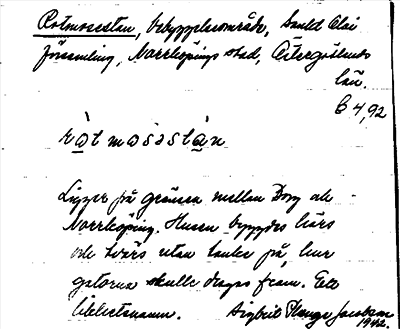 Rotmosestan, bebyggelseområde, Sankt Olai
församling, Norrköpings stad, Östergötlands
län.
6 4,92
ròtmosəstàn
Ligger på gränsen mellan Borg och
Norrköping. Husen byggdes kors
och tvärs utan tanke på, hur
gatorna skulle dragas fram. Ett
öknamn.
Sigbrit Plænge Jacobson
1942.